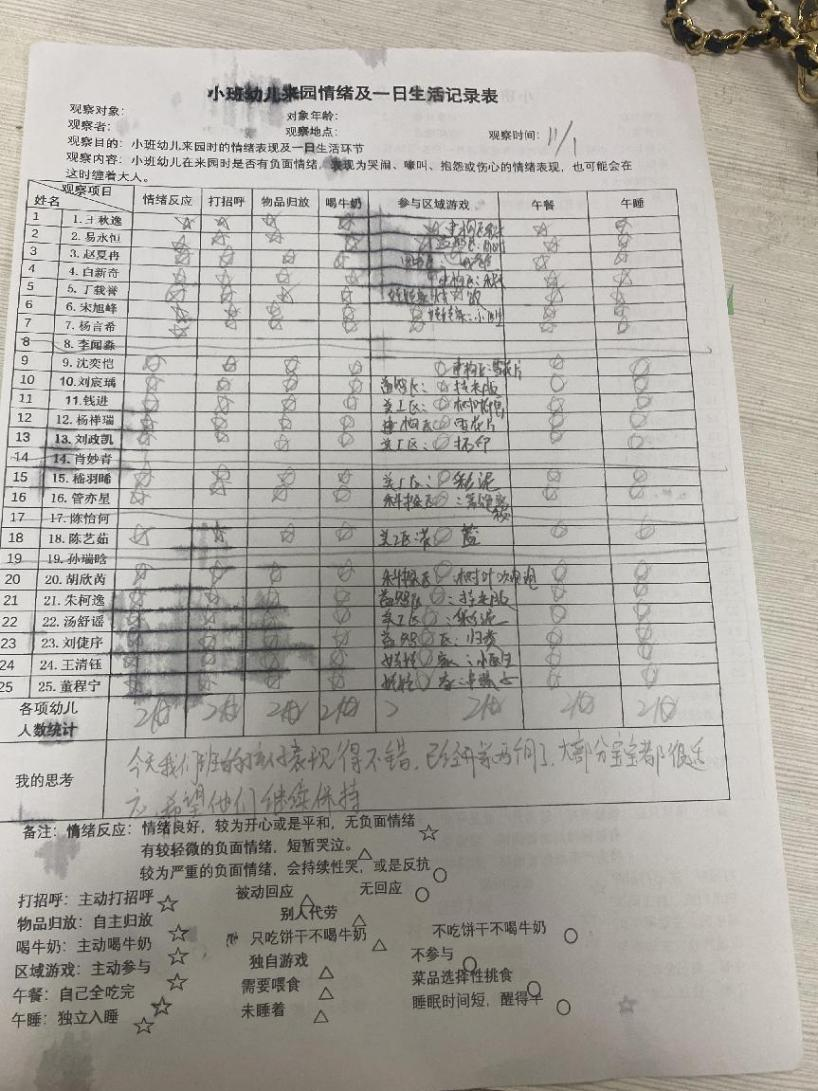 小班幼儿来园情绪及一日生活记录表
观察对象： 对象年龄：
观察者： 观察地点： 观察时间：11/1
观察目的：小班幼儿来园时的情绪表现及一日生活环节
观察内容：小班幼儿在来园时是否有负面情绪，表现为哭闹、嚎叫、抱怨或伤心的情绪表现，也可能会在
这时缠着大人。
观察项目
姓名 情绪反应 打招呼 物品归放 喝牛奶 参与区域游戏 午餐 午睡
1 1.王秋逸 ☆ ☆ ☆ ☆ ☆ 建构区 ☆ ☆
2 2.易永恒 ☆ ☆ ☆ ☆ ☆ ☆ ☆
3 3.赵夏冉 ☆ ☆ ☆ ☆ ☆ ☆
4 4.白新奇 ☆ ☆ ☆ ☆ 建构区 ☆ ☆
5 5.丁载誉 ☆ ☆ ☆ ☆ ☆ ☆ ☆
6 6.宋旭峰 ☆ ☆ ☆ ☆ ☆ 娃娃家： ☆ ☆
7 7.杨言希 ☆ ☆ ☆ ☆ ☆ ☆
8 8.李闻淼
9 9.沈奕恺 ☆ ☆ ☆ ☆ ☆ 建构区：雪花片 ☆ ☆
10 10.刘宸瑀 ☆ ☆ ☆ ☆ 益智区：☆ ☆ ☆
11 11.钱进 ☆ ☆ ☆ ☆ 美工区：☆ 树叶 ☆ ☆
12 12.杨梓瑞 ☆ ☆ ☆ ☆ 建构区☆ 雪花片 ☆ ☆
13 13.刘政凯 ☆ ☆ ☆ ☆ 美工区：☆ 拓印 ☆ ☆
14 14.肖妙青
15 15.嵇羽晞 ☆ ☆ ☆ ☆ 美工区：☆ 彩泥 ☆ ☆
16 16.管亦星 ☆ ☆ ☆ ☆ 科探区☆： ☆ ☆
17 17.陈怡何
18 18.陈艺茹 ☆ ☆ ☆ ☆ 美工区 ☆ 蓝 ☆ ☆
19 19.孙瑞晗
20 20.胡欣芮 ☆ ☆ ☆ ☆ 科探区☆：树叶 ☆ ☆
21 21.朱柯逸 ☆ ☆ ☆ ☆ 益智区☆： ☆ ☆
22 22.汤舒谣 ☆ ☆ ☆ ☆ 美工区☆：彩泥 ☆ ☆
23 23.刘倢序 ☆ ☆ ☆ ☆ 益智☆区：归类 ☆ ☆
24 24.王清钰 ☆ ☆ ☆ ☆ 娃娃☆家：小医生 ☆ ☆
25 25.董程宁 ☆ ☆ ☆ ☆ 娃娃☆家： ☆ ☆
各项幼儿
人数统计 21位 21位 21位 21位 21位 21位 21位
我的思考 今天我们班的宝宝表现得不错，已经开学两个月了，大部分宝宝都很适
应，希望他们继续保持
备注：情绪反应：情绪良好，较为开心或是平和，无负面情绪☆
有较轻微的负面情绪，短暂哭泣。△
较为严重的负面情绪，会持续性哭，或是反抗○
打招呼：主动打招呼☆ 被动回应△ 无回应○
物品归放：自主归放☆ 别人代劳△
喝牛奶：主动喝牛奶☆ 只吃饼干不喝牛奶△ 不吃饼干不喝牛奶○
区域游戏：主动参与☆ 独自游戏△ 不参与○
午餐：自己全吃完☆ 需要喂食△ 菜品选择性挑食○
午睡：独立入睡☆ 未睡着△ 睡眠时间短，醒得早○